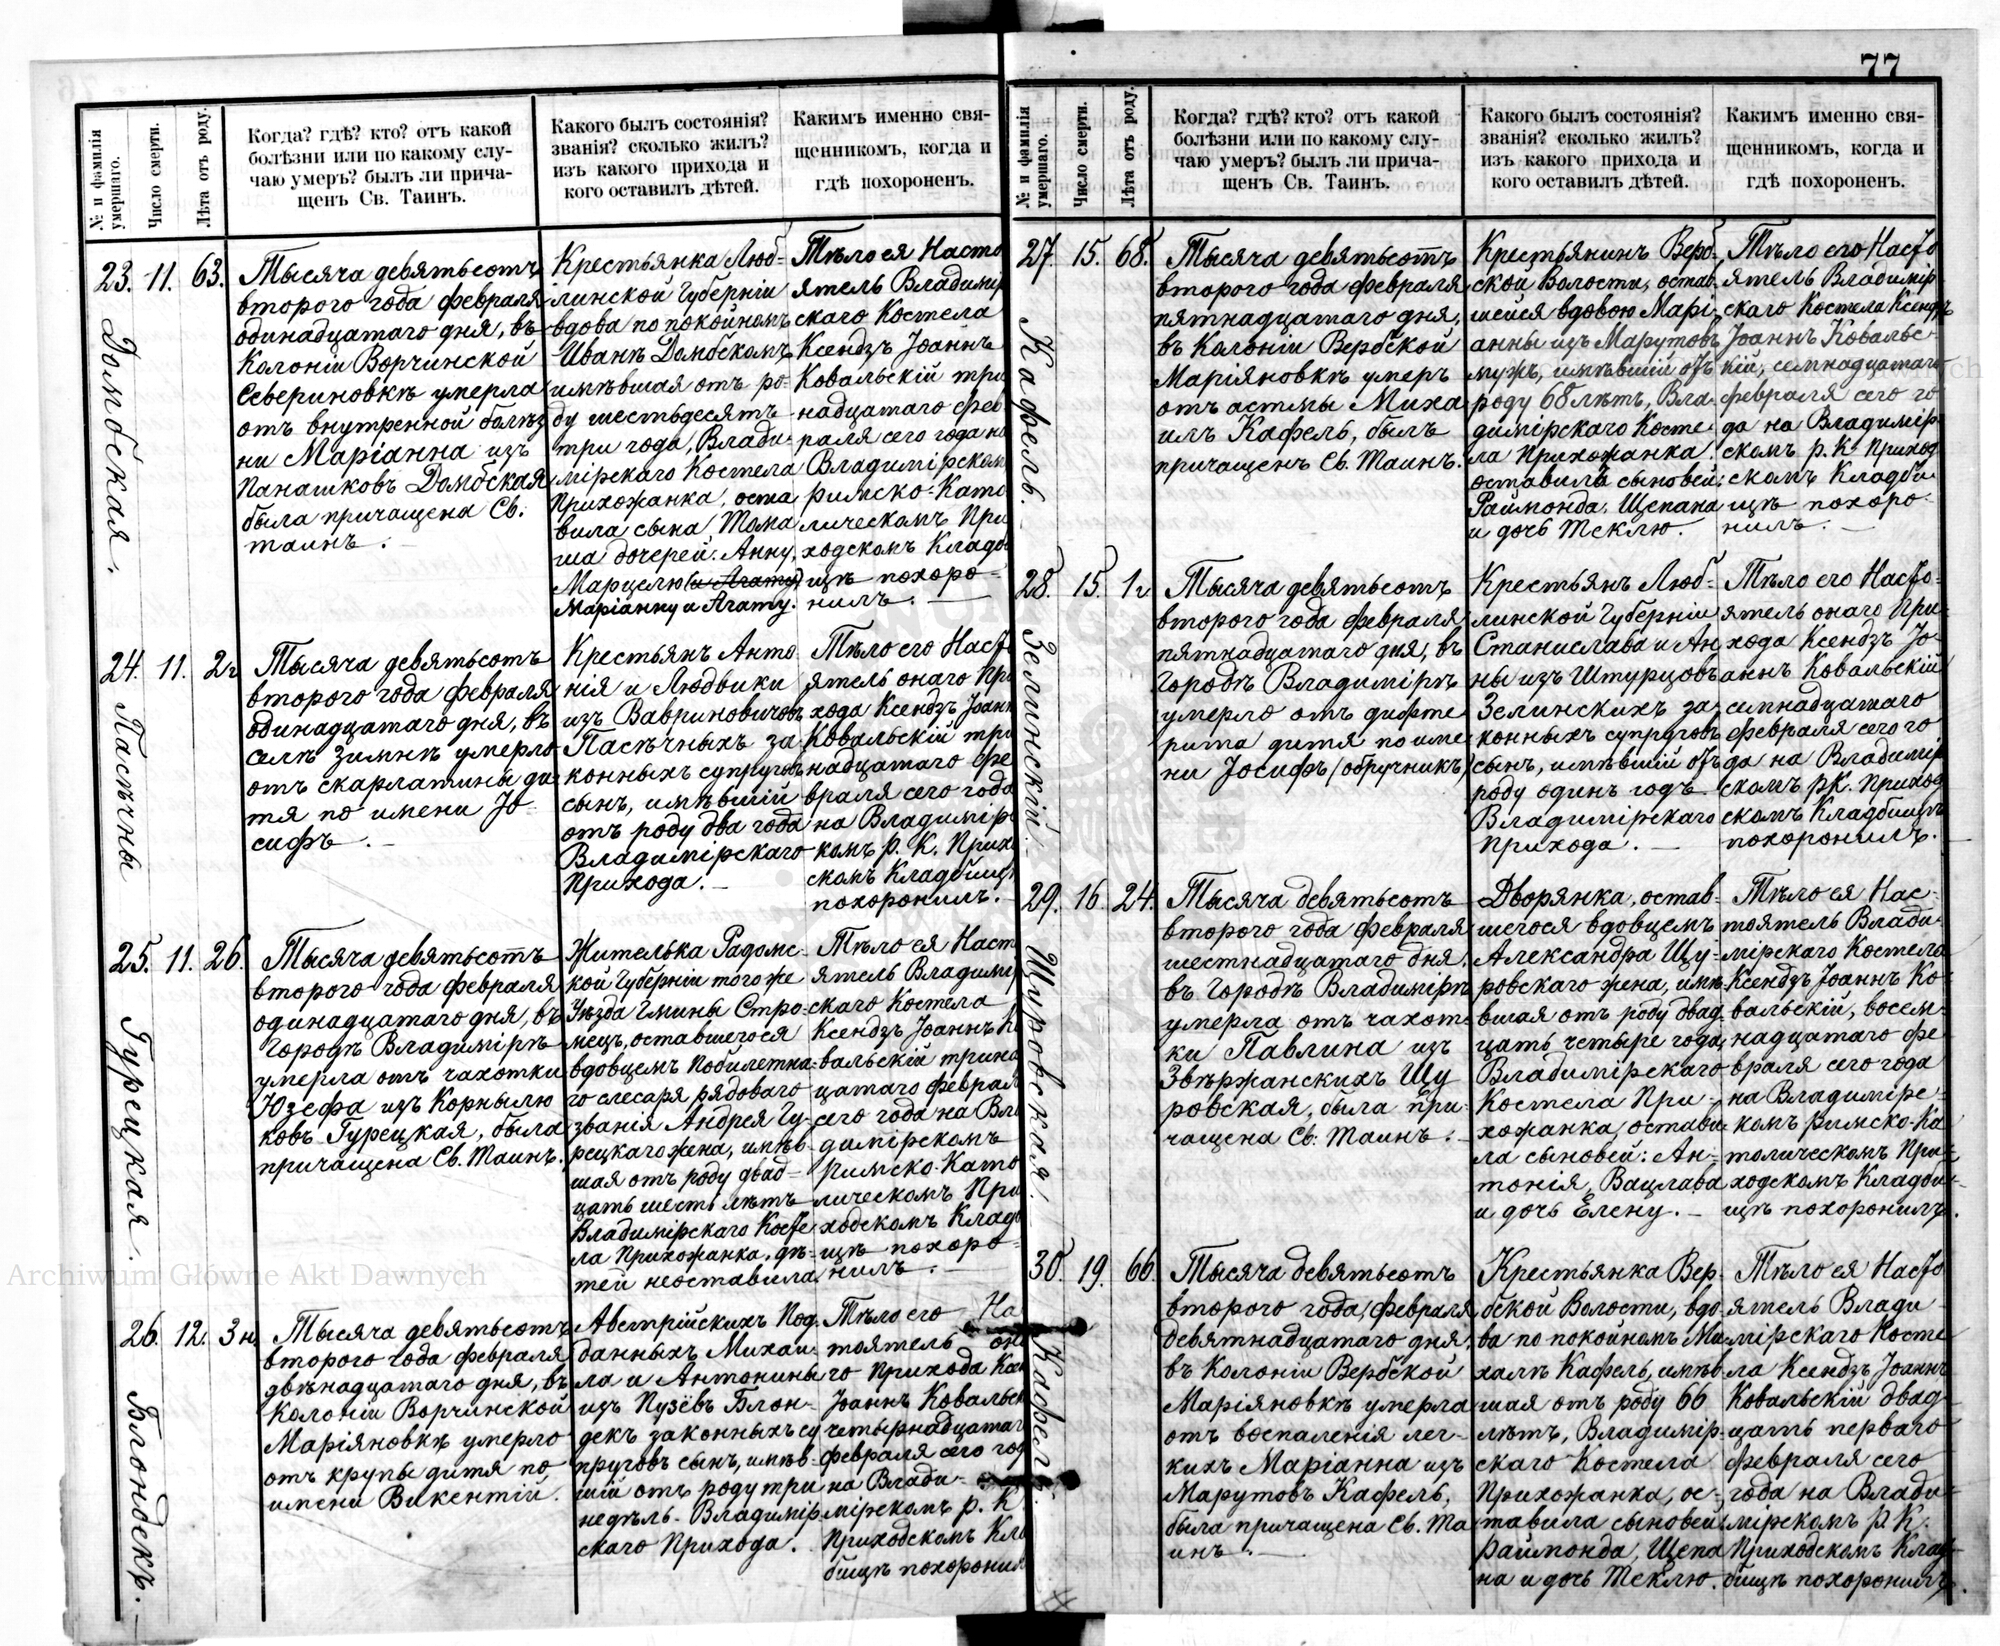 77
№ и фамилія умершаго.
Число смерти.
Лѣта отъ роду.
Когда? гдѣ? кто? отъ какой
болѣзни или по какому слу-
чаю умеръ? былъ ли прича-
щенъ Св. Таинъ.
Какого былъ состоянія?
званія? сколько жилъ?
изъ какого прихода и
кого оставилъ дѣтей.
Какимъ именно свя-
щенникомъ, когда и
гдѣ похороненъ.
23. 11. 63.
Домбская.
Тысяча девятьсотъ
второго года февраля
одинадцатаго дня, въ
Колоніи Ворчинской
Севериновкѣ умерла
отъ внутренной болѣз
ни Маріанна изъ
Панашковъ Домбская
была причащена Св.
таинъ.
Крестьянка Люб-
линской Губерніи
вдова по покойномъ
Иванѣ Домбскомъ
имѣвшая отъ ро-
ду шестьдесятъ
три года, Влади-
мірскаго Костела
Прихожанка, оста
вила сына Тома
ша дочерей: Анну,
Марцелю (и Агату)
Маріанну и Агату.
Тѣло ея Насто
ятель Владимір
скаго Костела
Ксендзъ Іоаннъ
Ковальскій три
надцатаго фев
раля сего года на
Владимірском
римско-Като
лическомъ При
ходскомъ Кладб
ищѣ похоро-
нилъ.
24. 11. 2г
Пасѣчны
Тысяча девятьсотъ
второго года февраля
одинадцатаго дня, въ
селѣ Зимнѣ умерло
отъ скарлатины ди
тя по имени Іо-
сифъ.
Крестьянъ Анто
нія и Людвики
изъ Вавриновичовъ
Пасѣчныхъ за
конныхъ супруговъ
сынъ, имѣвшій
отъ роду два года
Владимірскаго
Прихода.
Тѣло его Насто
ятель онаго При
хода Ксендзъ Іоанн
Ковальскій три
надцатаго фе
враля сего года
на Владимірс
комъ р. К. Прих
скомъ Кладбищѣ
похоронилъ.
25. 11. 26.
Гурецкая.
Тысяча девятьсотъ
второго года февраля
одинадцатаго дня, въ
Городѣ Владимірѣ
умерла отъ чахотки
Юзефа изъ Корнылю
ковъ Гурецкая, была
причащена Св. Таинъ.
Жителька Радомс-
кой Губерніи того же
Уѣзда Гмины Стро-
мецъ, оставшегося
вдовцемъ побилетна-
го слесаря рядоваго
званія Андрея Гу-
рецкаго жена, имѣв-
шая отъ роду двад-
цать шесть лѣтъ
Владимірскаго Косте
ла Прихожанка, дѣ-
тей неоставила.
Тѣло ея Насто
ятель Владимір
скаго Костела
Ксендзъ Іоаннъ Ко
вальскій трина
цатаго феврал
сего года на Вла
димірскомъ
Римско-Като
лическомъ При
ходскомъ Кладб
ищѣ похоро-
нилъ.
26. 12. 3н.
Блондекъ.
Тысяча девятьсотъ
второго года февраля
двѣнадцатаго дня, въ
Колоніи Ворчинской
Маріяновкѣ умерло
отъ крупы дитя по
имени Викентій.
Австрійскихъ Под
данныхъ Михаи-
ла и Антонины
изъ Пузёвъ Блон-
декъ законныхъ су
пруговъ сынъ, имѣв-
шій отъ роду три
недѣль. Владимір
скаго Прихода.
Тѣло его На
тоятель она
го Прихода Ксе
Іоаннъ Ковальск
четырнадцатаг
февраля сего год
на Влади-
мірскомъ р. К.
Приходскомъ Кла
бищѣ похоронил
№ и фамилія умершаго.
Число смерти.
Лѣта отъ роду.
Когда? гдѣ? кто? отъ какой
болѣзни или по какому слу-
чаю умеръ? былъ ли прича-
щенъ Св. Таинъ.
Какого былъ состоянія?
званія? сколько жилъ?
изъ какого прихода и
кого оставилъ дѣтей.
Какимъ именно свя-
щенникомъ, когда и
гдѣ похороненъ.
27. 15. 68.
Кафель.
Тысяча девятьсотъ
второго года февраля
пятнадцатаго дня,
въ Колоніи Вербской
Маріяновкѣ умеръ
отъ астмы Миха
илъ Кафель, былъ
причащенъ Св. Таинъ.
Крестьянинъ Верб-
ской Волости, остав
шейся вдовою Марі-
анны изъ Марутовъ
мужъ, имѣвшій отъ
роду 68 лѣтъ, Вла-
димірскаго Косте-
ла Прихожанка
оставилъ сыновей:
Раймонда, Щепана
и дочь Теклю.
Тѣло его Насто
ятель Владимір
скаго Костела Ксендзъ
Іоаннъ Ковальс-
кій, семнадцатаго
февраля сего го
да на Владимір
скомъ р. К. Приход
скомъ Кладби-
щѣ похоро-
нилъ.
28. 15. 1г
Зелинскій.
Тысяча девятьсотъ
второго года февраля
пятнадцатаго дня, въ
Городѣ Владимірѣ
умерло отъ дифте
рита дитя по име
ни Іосифъ (обручникъ)
Крестьянъ Люб-
линской Губерніи
Станислава и Ан
ны изъ Штурцовъ
Зелинскихъ за
конныхъ супруговъ
сынъ, имѣвшій отъ
роду одинъ годъ
Владимірскаго
Прихода.
Тѣло его Насто-
ятель онаго При-
хода Ксендзъ Іо-
аннъ Ковальскій
семнадцатаго
февраля сего го
да на Владимір
скомъ р.К. Приход
скомъ Кладбищѣ
похоронилъ.
29. 16. 24.
Щуровская.
Тысяча девятьсотъ
второго года февраля
шестнадцатаго дня.
въ Городѣ Владимірѣ
умерла отъ чахот-
ки Павлина изъ
Звѣржанскихъ Щу
ровская, была при-
чащена Св. Таинъ.
Дворянка, остав-
шегося вдовцемъ
Александра Щу-
ровскаго жена, имѣ
вшая отъ роду двад
цать четыре года,
Владимірскаго
Костела При-
хожанка, остави-
ла сыновей: Ан-
тонія, Вацлава
и дочь Елену.
Тѣло ея Нас-
тоятель Влади-
мірскаго Костела
Ксендзъ Іоаннъ Ко-
вальскій, восем-
надцатаго фе-
враля сего года
на Владимірс-
комъ римско-Ка
толическомъ При-
ходскомъ Кладби-
щѣ похоронилъ.
30. 19. 66.
Кафель.
Тысяча девятьсотъ
второго года, февраля
девятнадцатаго дня,
въ Колоніи Вербской
Маріяновкѣ умерла
отъ воспаленія лег-
кихъ Маріанна изъ
Марутовъ Кафель,
была причащена Св. Та
инъ.
Крестьянка Вер-
бской Волости, вдо
ва по покойномъ Ми
халѣ Кафель, имѣв
шая отъ роду 66
лѣтъ, Владимір-
скаго Костела
Прихожанка, ос-
тавила сыновей:
Раймонда, Щепа
на и дочь Теклю.
Тѣло ея Насто
ятель Влади-
мірскаго Косте
ла Ксендзъ Іоаннъ
Ковальскій двад-
цать перваго
февраля сего
года на Влади-
мірскомъ р.К.
Приходскомъ Клад-
бищѣ похоронилъ.
Archiwum Główne Akt Dawnych